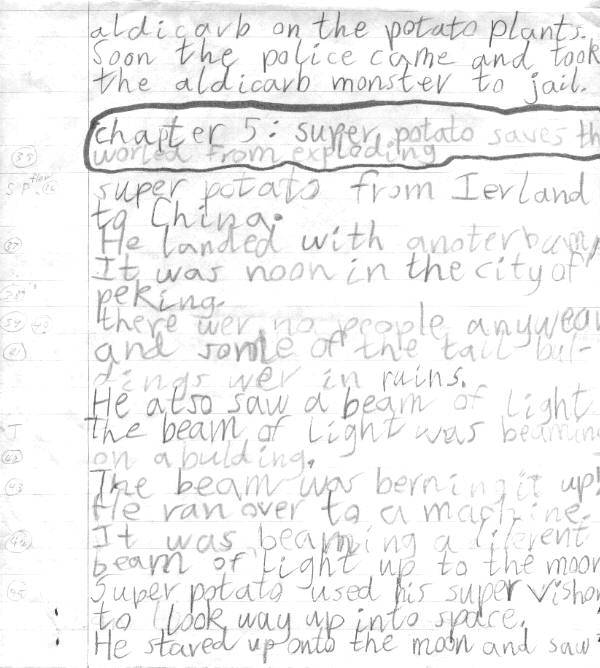 aldicarb on the potato plants.
Soon the police came and took
the aldicarb monster to jail.
chapter 5: super potato saves th
worled from exploding
super potato from Ierland
to China.
He landed with anoter bump
It was noon in the city of
peking.
there wer no people anywear
and some of the tall bul-
dings wer in ruins.
He also saw a beam of light
the beam of light was beaming
on a bulding.
The beam was berning it up!
He ran over to a machine.
It was beaming a diferent
beam of light up to the moon
Super potato used his super vishon
to look way up into space.
He stared up onto the moon and saw